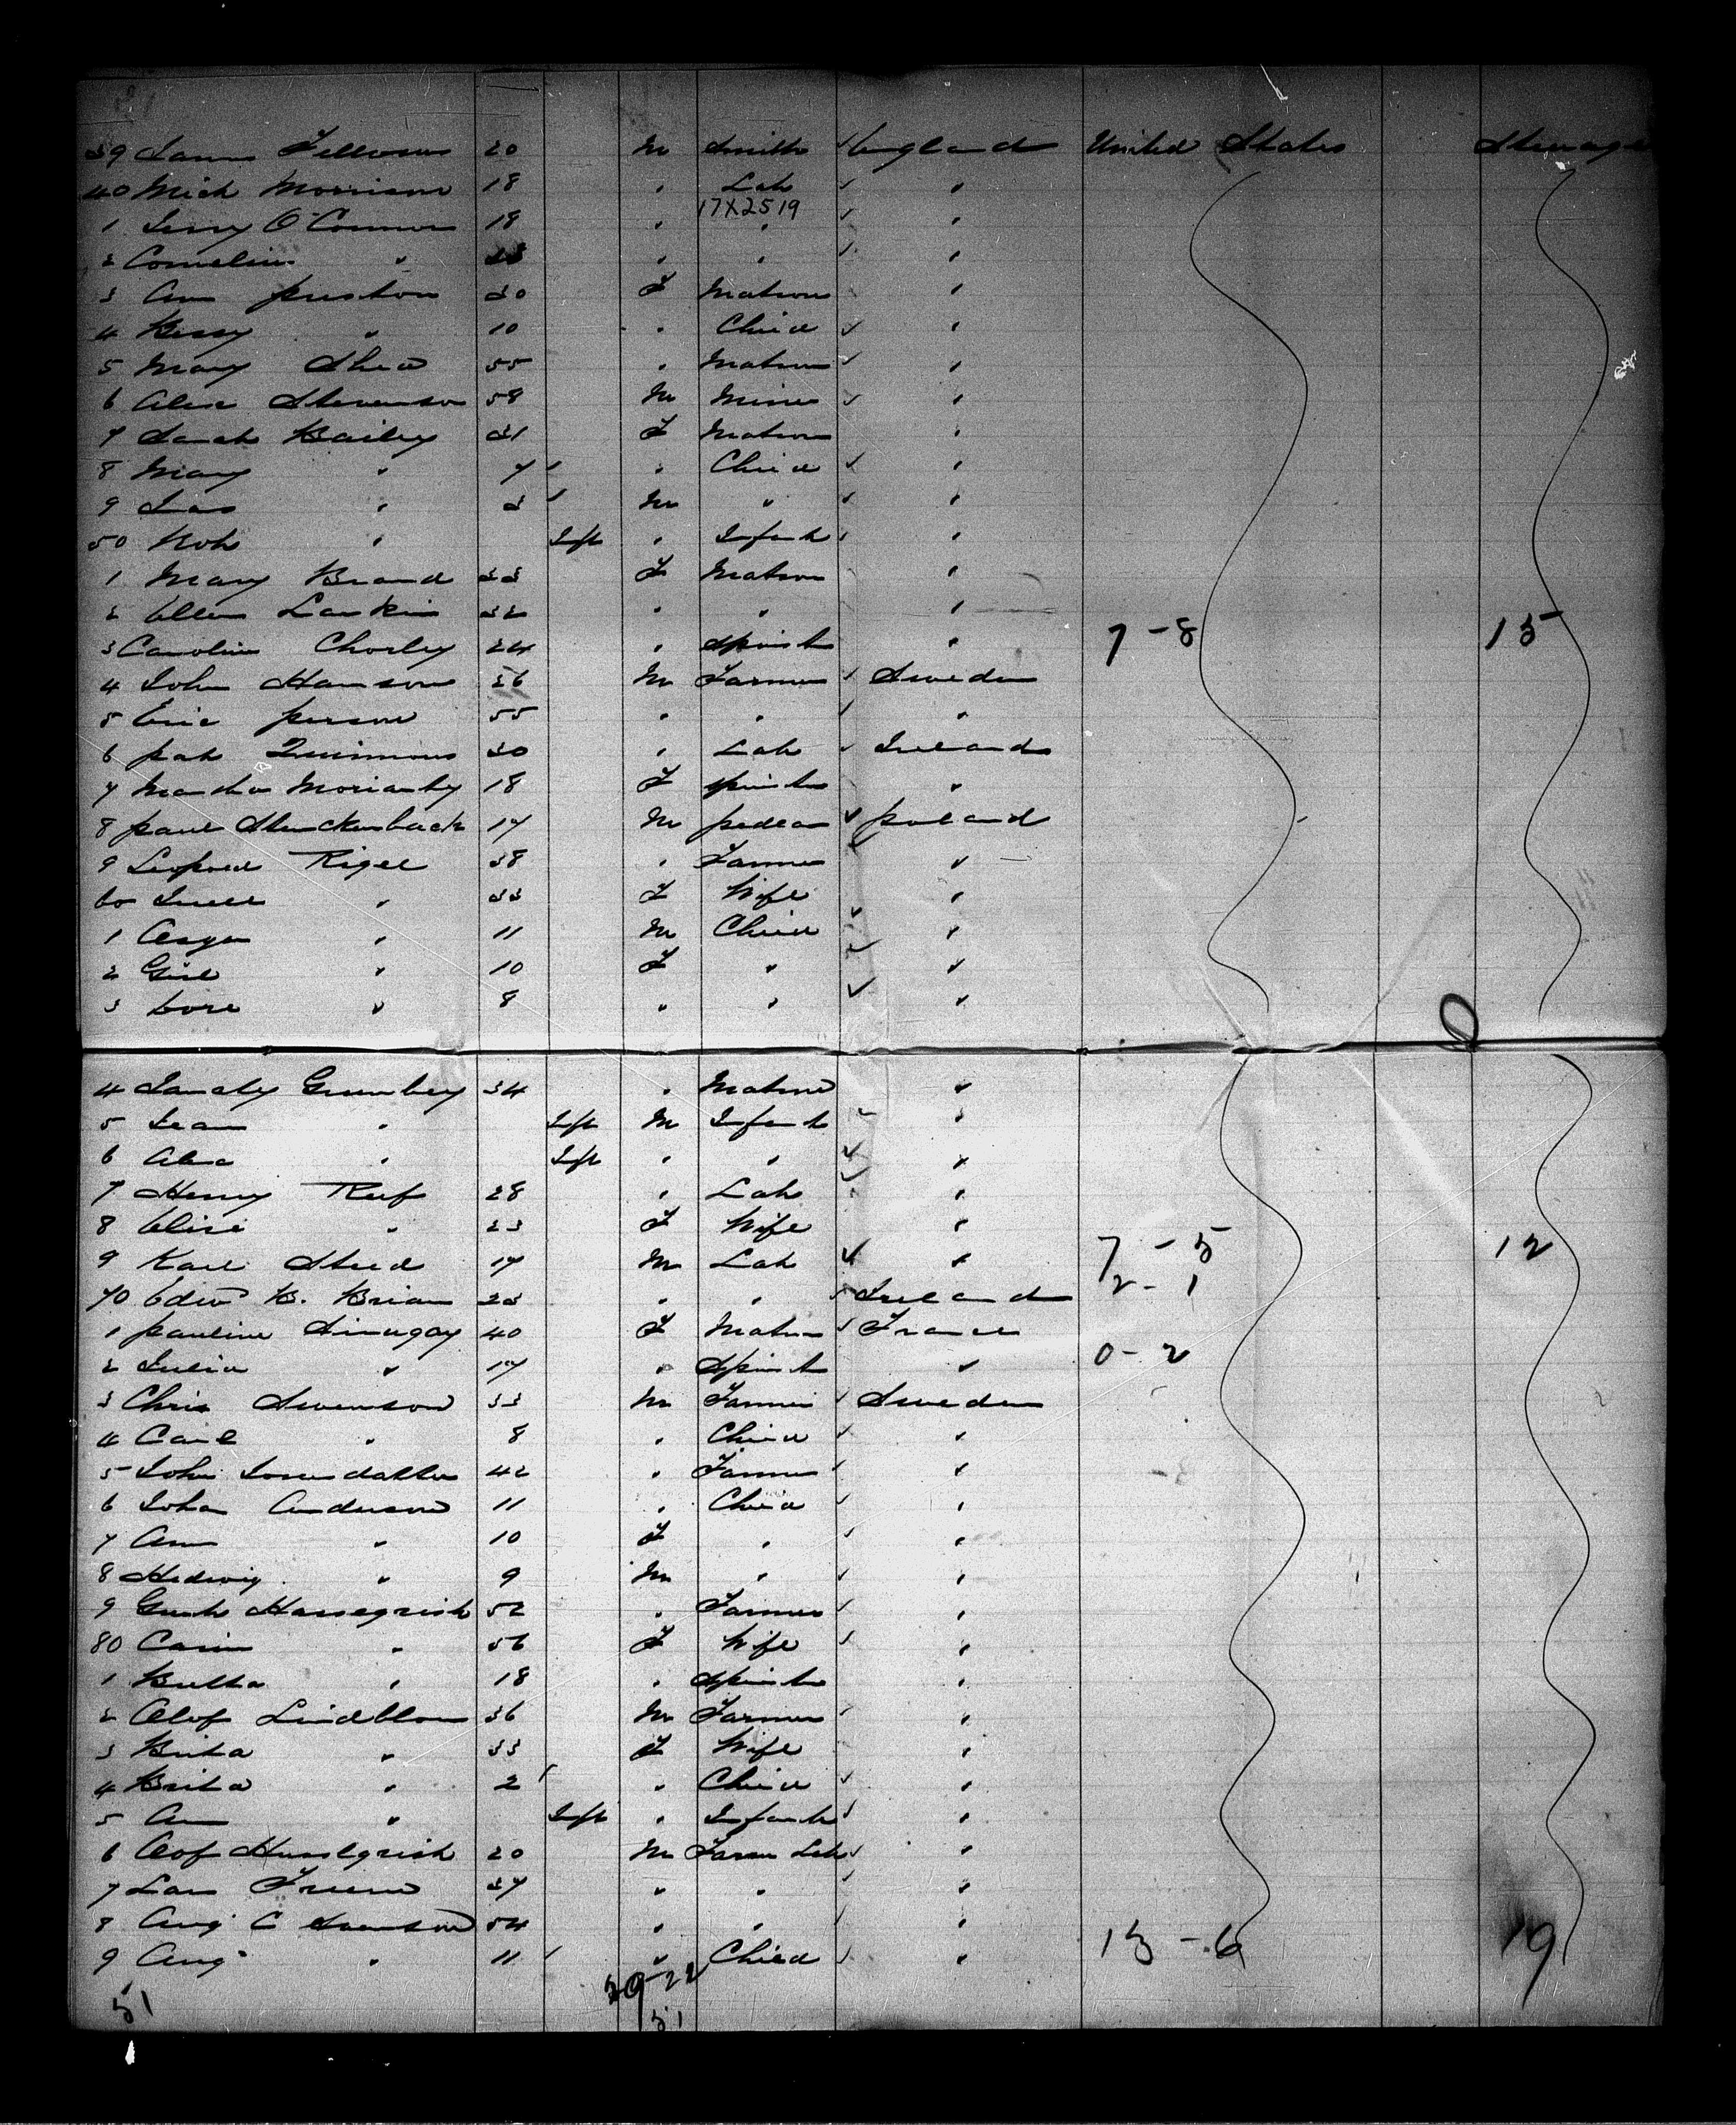 39 James Fellows 20 M Smith England United States Steerage
40 Mich Morrison 18 " Lab "
17X2519
1 Jerry O'Connor 19 " " "
2 Cornelius " " " "
3 Ann Preston 30 F Matron "
4 Bessy " 10 " Child "
5 Mary Shea 55 " Matron "
6 Alex Stevenson 58 M Miner "
7 Sarah Bailey 31 F Matron "
8 Mary " 7 " Child "
9 Jas " 3 M " "
50 Rob " Inft " Infant "
1 Mary Brand 33 F Matron "
2 Ellen Larkin 32 " " "
3 Caroline Chorley 24 " Spinst " 7-8 15
4 John Hanson 36 M Farmer Sweden
5 Eric Person 55 " " "
6 Pat 30 " Lab Ireland
7 Moriarty 18 F Spinster "
8 Paul 17 M Pedlar Poland
9 Leopold Rigel 38 " Farmer "
60 " 33 F Wife "
1 " 11 M Child "
2 " 10 F " "
3 " 8 " " "
4 34 " Matron "
5 " Inft M Infant "
6 Alex " Inft " " "
7 Henry Reif 28 " Lab "
8 Elise " 23 F Wife "
9 Karl 17 M Lab " 7-5 12
70 Edwd B. Brian 23 " " Ireland 2-1
1 Pauline 40 F Matron France
2 Julia " 17 " Spinst " 0-2
3 Chris Swenson 33 M Farmer Sweden
4 Carl " 8 " Child "
5 John 42 " Farmer "
6 Johan Anderson 11 " Child "
7 Ann " 10 F " "
8 Hedwig " 9 M " "
9 52 " Farmer "
80 Carin " 56 F Wife "
1 " 18 " Spinster "
2 Olof Lindblom 36 M Farmer "
3 Brita " 33 F Wife "
4 Brita " 2 " Child "
5 Ann " Inft " Infant "
6 20 M Farm Lab "
7 Lars 37 " " "
8 Aug C Swenson 54 " " "
9 Aug " 11 " Child " 13-6 19
51 29-22
51